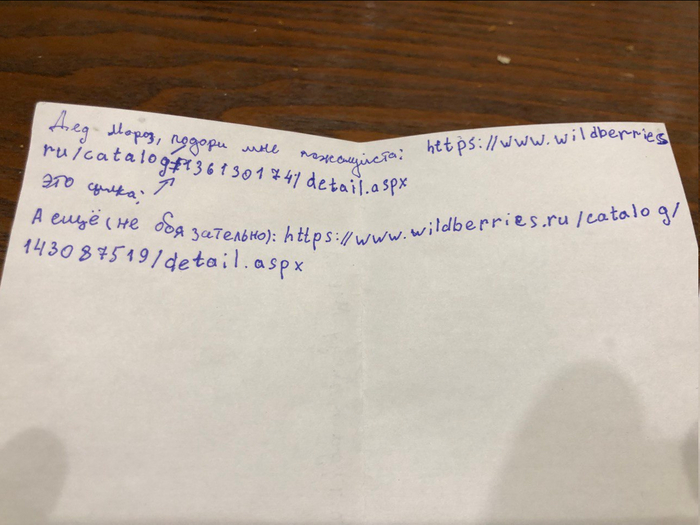 Дед Мороз, подори мне пожалуйста: https://www.wildberries
ru/catalog/136130174/detail.aspx
это сылка:
А ещё (не боязательно): https://www.wildberries.ru/catalog/
143087519/detail.aspx